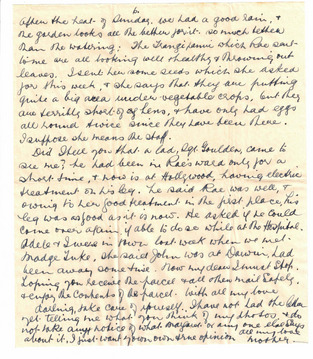 6
After the heat of Sunday, we had a good rain, &
the garden looks all the better for it. so much better
than the watering. The Frangipanni which Rae sent
to me are all looking well & healthy & throwing out
leaves. I sent her some seeds which she asked
for this week, & she says that they are putting
quite a big area under vegetable crops, but they
are terribly short of eggs, & have only had eggs
all round twice since they have been there.
I suppose she means the staff.
Did I tell you that a lad, Sgt Goulden, came to
see me? he had been in Rae's ward only for a
short time, & now is at Hollywood, having electric
treatment on his leg. he said Rae was well, &
owing to her good treatment in the first place, his
leg was as good as it is now. He asked if he could
come over again if able to do so while at the Hospital.
Adele & I were in town last week when we met
Madge. She said John was at Darwin, had
been away some time. Now my dear I must stop.
Hoping you receive the parcel & all other mail safely,
& enjoy the contents of the parcel. With all my love
darling, take care of yourself. I have not had the letter
yet telling me what you think of my photos, & do
not take any notice of what or any one else says
about it. I just want your own true opinion
all my love
mother.